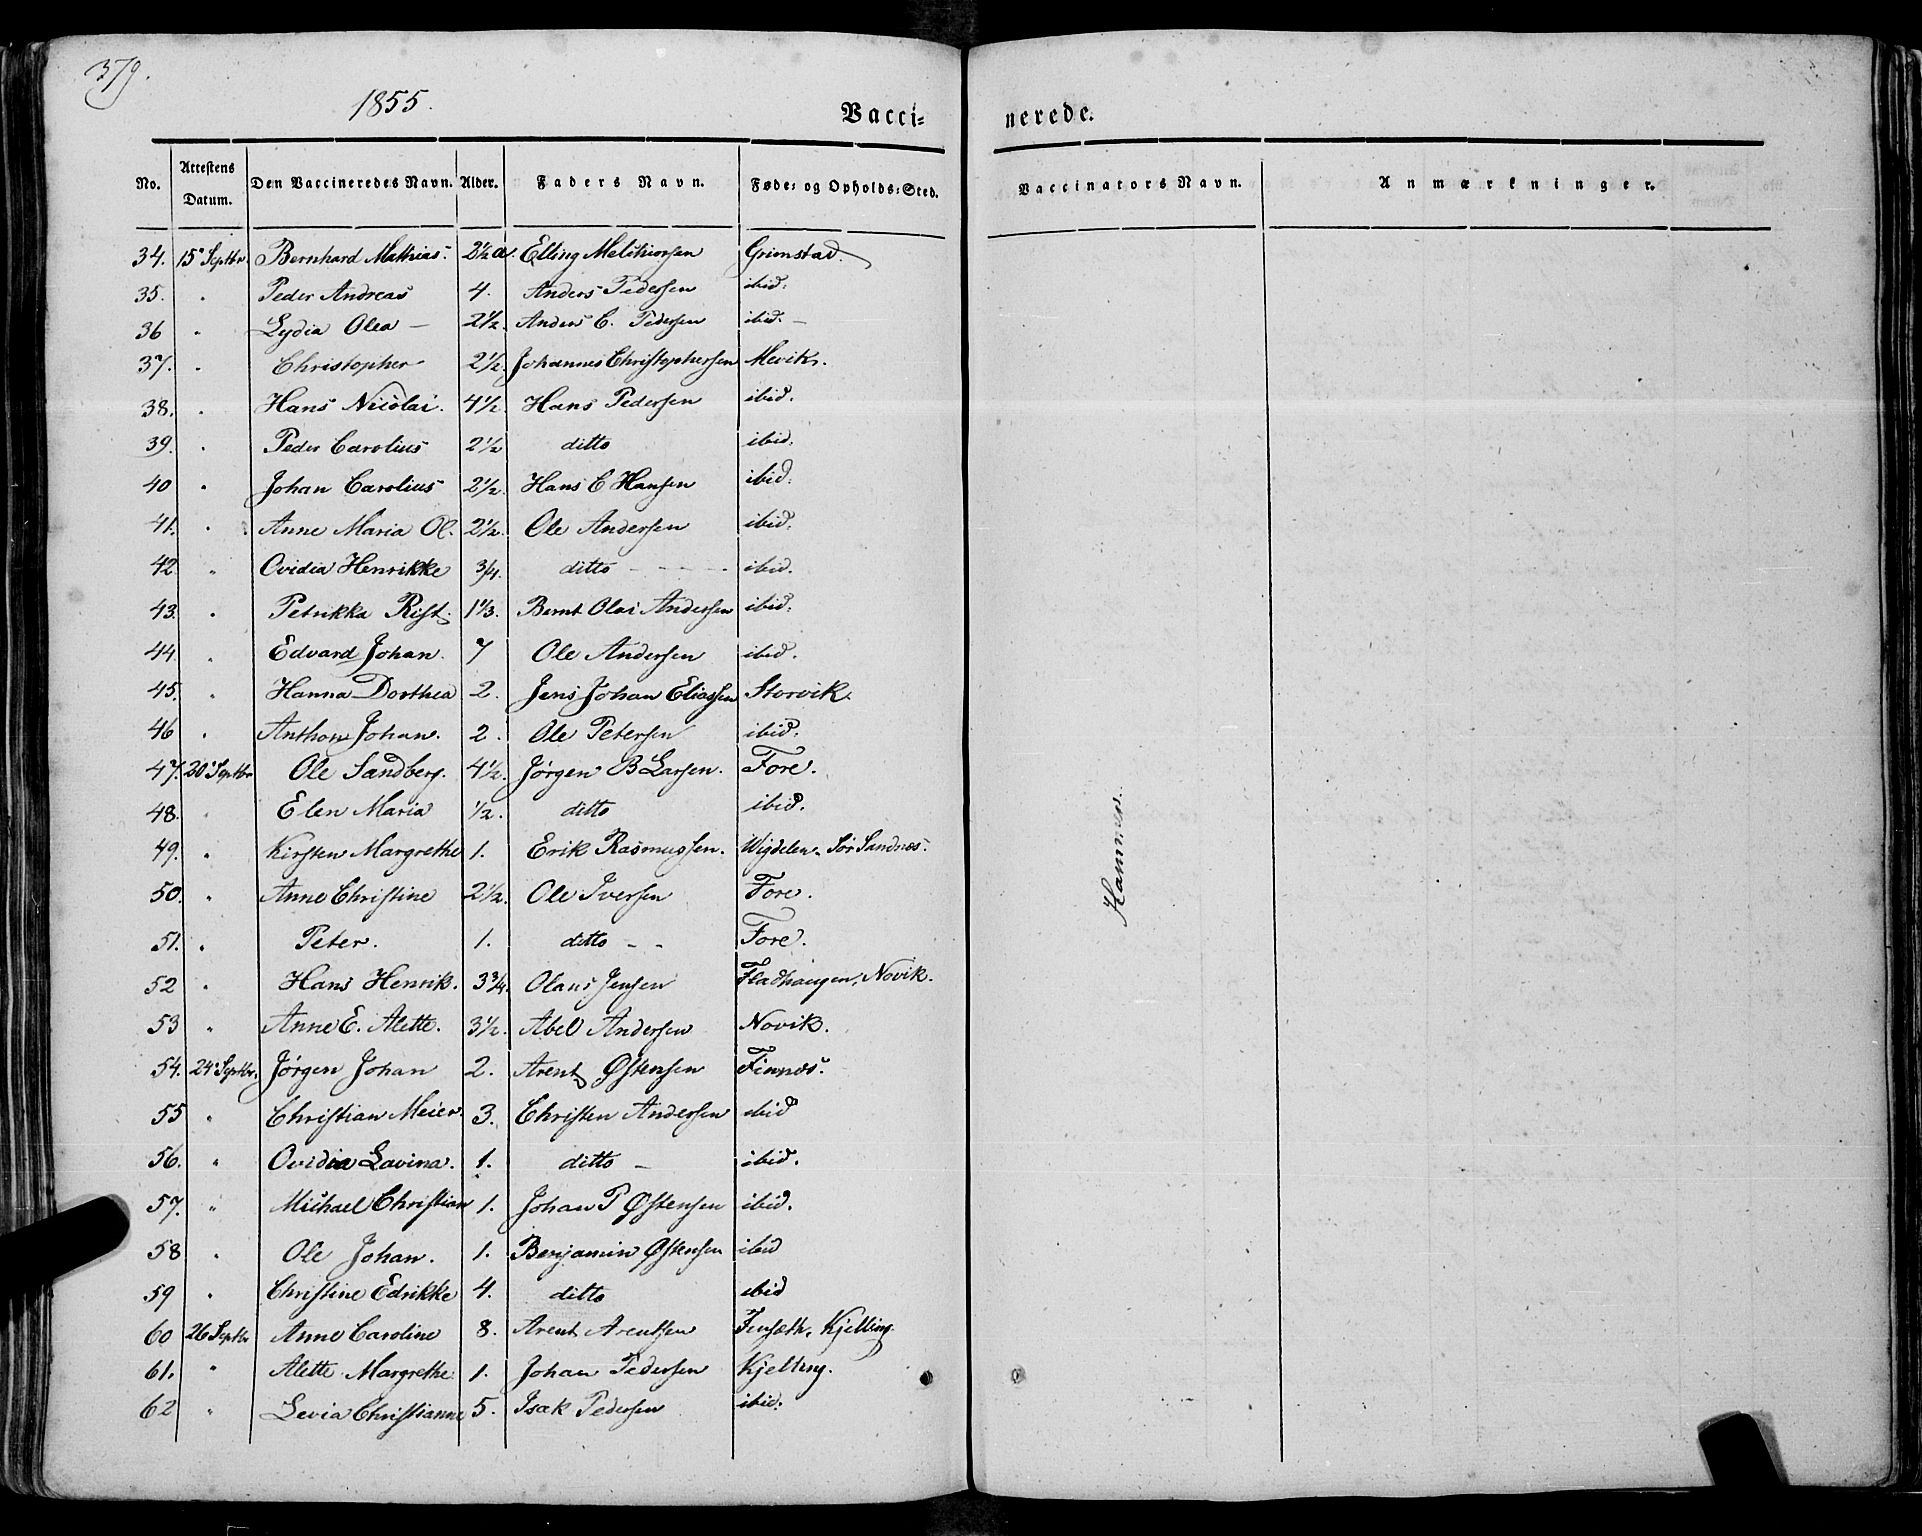 379.
1855.
Vacci= nerede.
No. Attestens Datum. Den Vaccineredes Navn. Alder. Faders Navn. Føde= og Opholds=Sted. Vaccinators Navn. Anmærkninger.
34. 15 Septbr. Bernhard Mathias. 2½ a. Elling Melchiorsen Grimstad.
35. " Peder Andreas 4. Anders Pedersen ibid:
36 " Lydia Olea — 2½. Anders C. Pedersen ibid. —
37. " Christopher 2½. Johannes Christophersen Mevik.
38. " Hans Nicolai. 4½. Hans Pedersen ibid.
39. " Peder Carolius 2½ ditto ibid.
40 " Johan Carolius 2½. Hans C Hansen ibid.
41. " Anne Maria Ol. 2½. Ole Andersen ibid.
42 " Ovidia Henrikke 3/4. ditto - - - - ibid.
43. " Petrikka Rist. 1⅓. Bernt Olai Andersen ibid.
44 " Edvard Johan. 7 Ole Andersen ibid.
45. " Hanna Dorthea 2. Jens Johan Eliassen Storvik.
46 " Anthon Johan. 2. Ole Petersen ibid.
47. 20 Septbr Ole Sandberg. 4½. Jørgen B Larsen. Fore.
48. " Elen Maria ½. ditto ibid.
49. " Kirsten Margrethe 1. Erik Rasmussen. Wigdelen. Sør Sandnæs.
50. " Anne Christine 2½. Ole Iversen Fore.
51. " Peter. 1. ditto - - Fore.
52 " Hans Henrik. 3¾. Olaus Jensen Fladhaugen, Novik.
53 " Anne E. Alette. 3½. Abel Andersen Novik.
54. 24 Septbr. Jørgen Johan 2. Arent Østensen Finnæs.
55 " Christian Meier. 3. Christen Andersen ibid
56. " Ovidia Lavina. 1. ditto — ibid.
57. " Michael Christian 1. Johan P Østensen ibid.
58 " Ole Johan. 1. Benjamin Østensen ibid
59 " Christine Edrikke 4. ditto ibid
60 26 Septbr Anne Caroline 8. Arent Arentsen Jensæth, Kjelling.
61. " Alette Margrethe. 1. Johan Pedersen Kjelling.
62 " Levia Christianne 5. Isak Pedersen ibid.
Hammer.